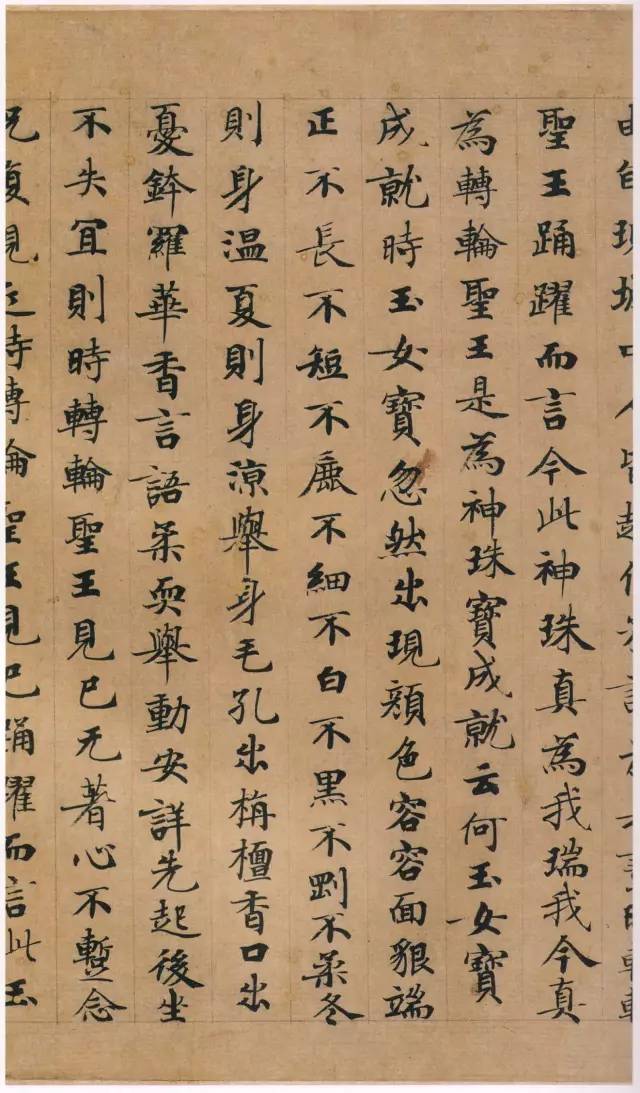 聖王踊躍而言今此神珠真為我瑞我今真
為轉輪聖王是為神珠寶成就云何玉女寶
成就時玉女寶忽然出現顏色容容面貌端
正不長不短不麁不細不白不黑不剛不柔冬
則身溫夏則身涼舉身毛孔出栴檀香口出
憂鉢羅華香言語柔耎舉動安詳先起後坐
不失宜則時轉輪聖王見已无著心不蹔念
況復親近時轉輪聖王見已踊躍而言此玉